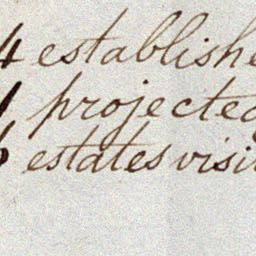 4 establishe
1 projected
6 estates visi